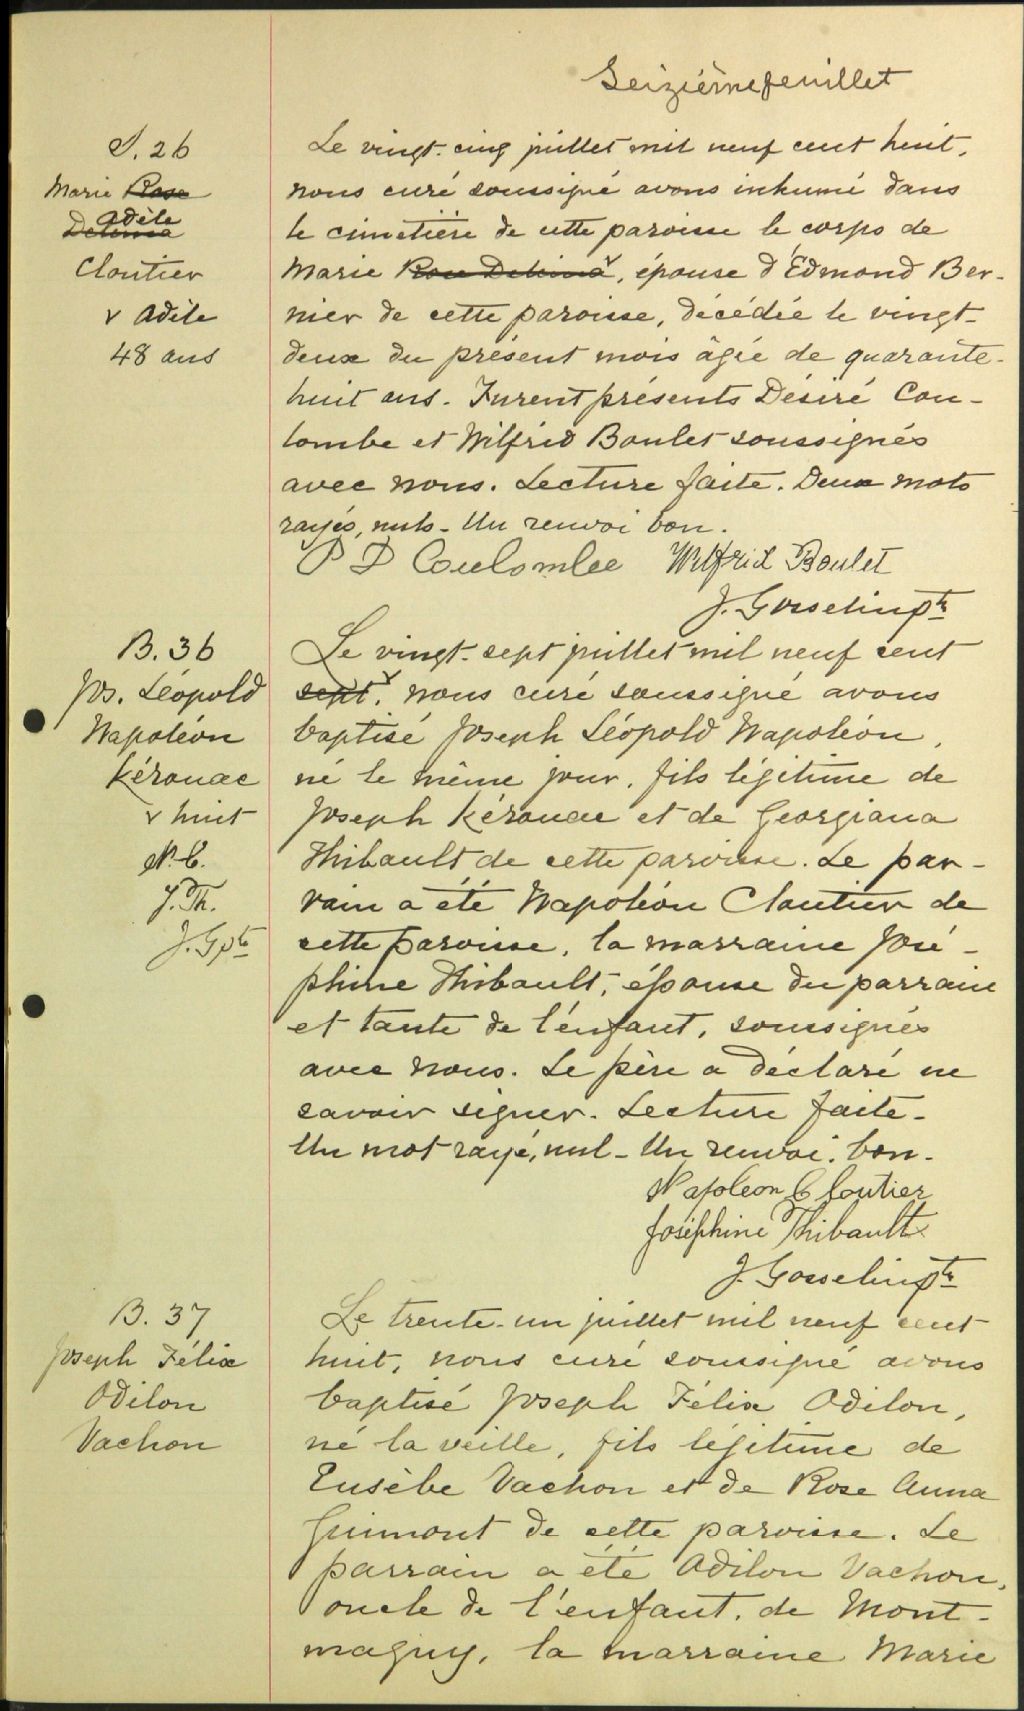 Seizième feuillet
S. 26
Marie Rose
Adèle
Delima
Cloutier
v Adèle
48 ans
Le vingt-cinq juillet mil neuf cent huit,
nous curé soussigné avons inhumé dans
le cimetière de cette paroisse le corps de
Marie Rose Delima v, épouse d'Edmond Ber-
nier de cette paroisse, décédée le vingt-
deux du présent mois âgée de quarante-
huit ans. Furent présents Désiré Cou-
lombe et Wilfrid Boulet soussignés
avec nous. Lecture faite. Deux mots
rayés, nuls - Un renvoi bon.
P D Coulombe Wilfrid Boulet
J. Gosselin ptre
B. 36
Jos. Léopold
Napoléon
Kérouac
v huit
N. C.
J. Th.
J. G ptre
Le vingt-sept juillet mil neuf cent
sept v, nous curé soussigné avons
baptisé Joseph Léopold Napoléon,
né le même jour, fils légitime de
Joseph Kérouac et de Georgiana
Thibault de cette paroisse. Le par-
rain a été Napoléon Cloutier de
cette paroisse, la marraine José-
phine Thibault, épouse du parrain
et tante de l'enfant, soussignés
avec nous. Le père a déclaré ne
savoir signer. Lecture faite -
Un mot rayé, nul - Un renvoi, bon.
Napoleon Cloutier
Joséphine Thibault
J. Gosselin ptre
B. 37
Joseph Félix
Odilon
Vachon
Le trente-un juillet mil neuf cent
huit, nous curé soussigné avons
baptisé Joseph Félix Odilon,
né la veille, fils légitime de
Eusèbe Vachon et de Rose Anna
Guimont de cette paroisse. Le
parrain a été Odilon Vachon,
oncle de l'enfant, de Mont-
magny, la marraine Marie